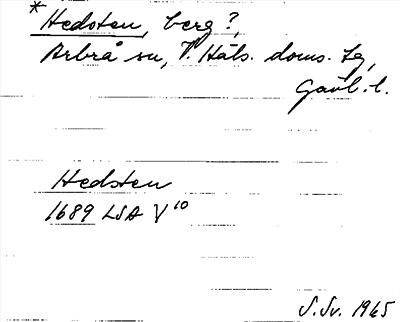 * Hedsten, berg?,
Arbrå sn, V. Häls. doms. tg,
Gävl. l.
Hedsten
1689 LSA V10
S.Sv. 1965